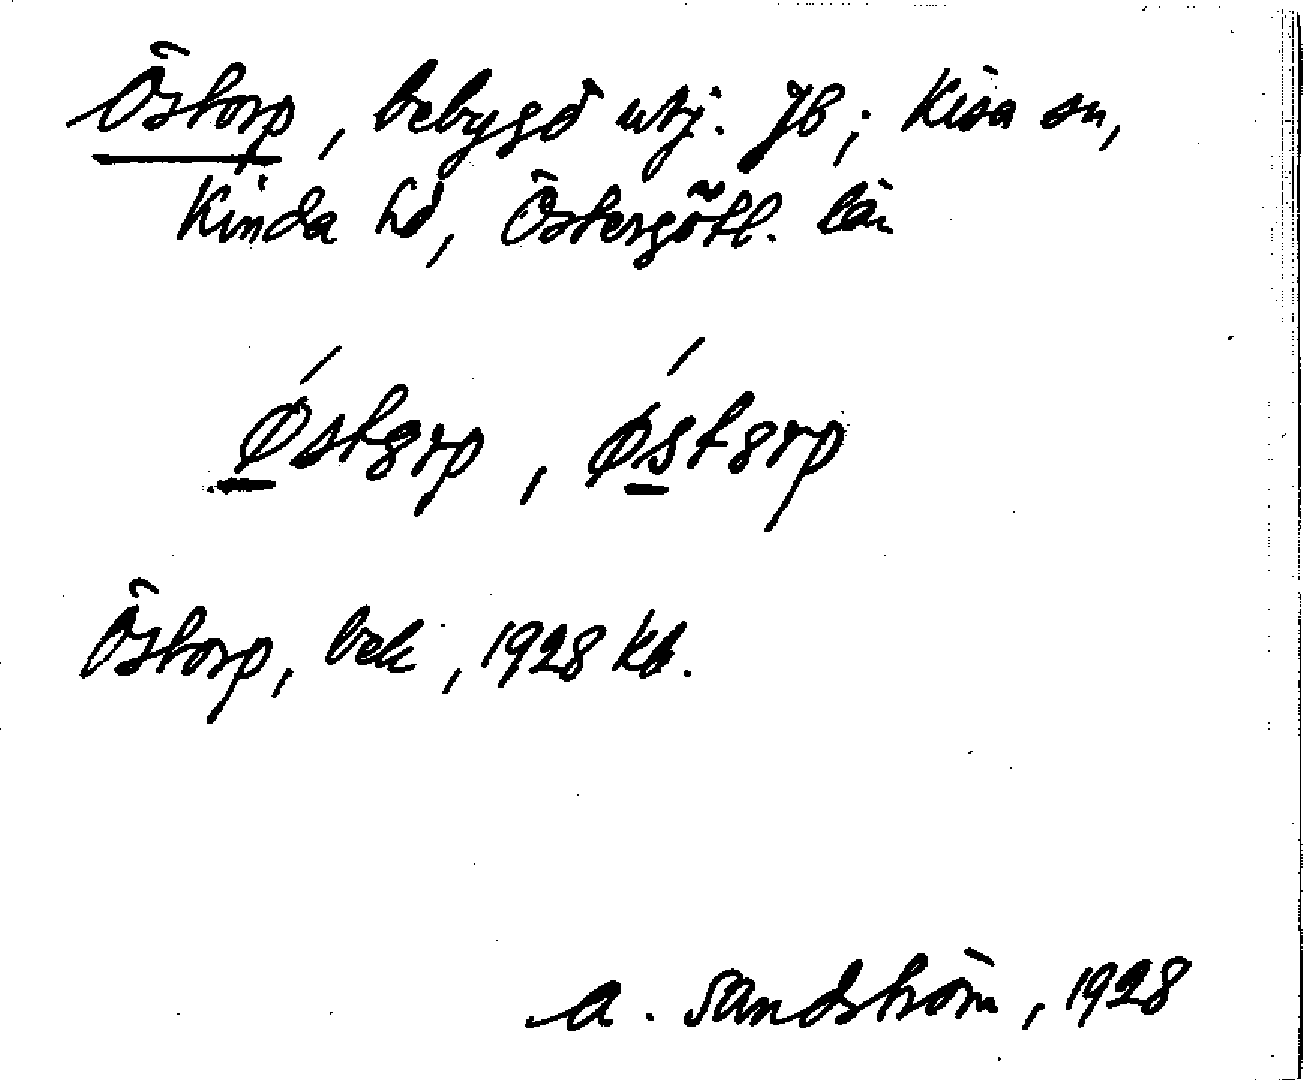 Östorp, bebygd utj. Jb; Kisa sn,
Kinda hd, Östergötl. län
ǿstgrp, ǿstgrp
Östorp, bek, 1928 kb.
A. Sandström, 1928